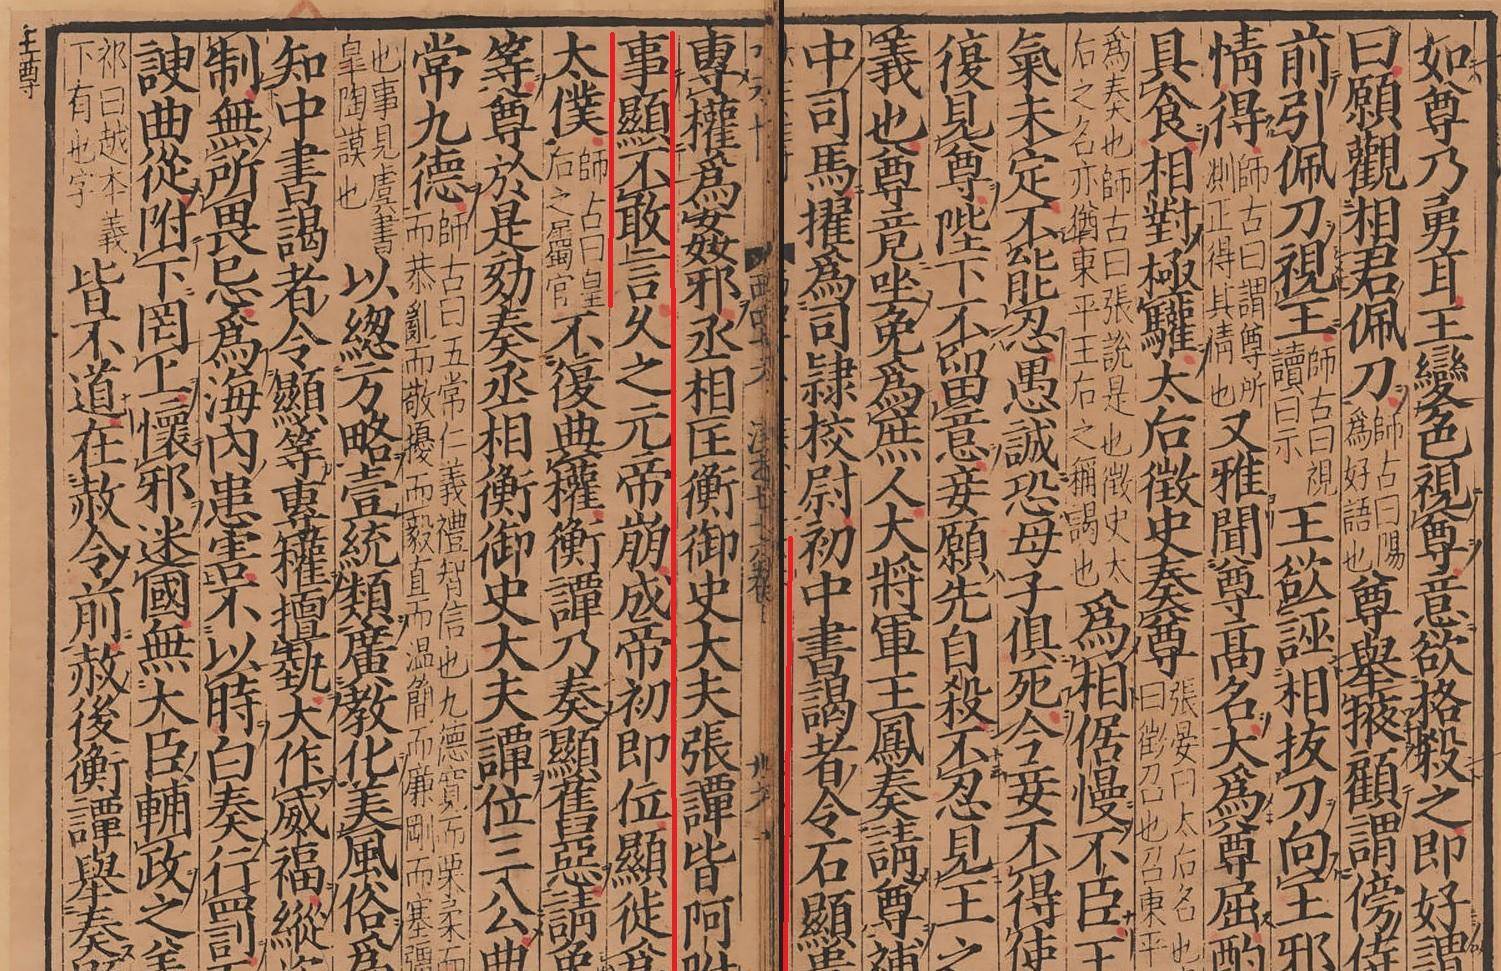 如尊乃勇耳王變色視尊意欲格殺之即好謂
曰願觀相君佩刀師古曰陽爲好語也尊舉掖顧謂傍侍
前引佩刀視王師古曰視讀曰示王欲誣相拔刀向王邪
情得師古曰謂尊所測正得其情也又雅聞尊高名大爲尊屈酌
具食相對極驩太后徵史奏尊張晏曰太后名也曰徵召也召東平
爲奏也師古曰張說是也徵史太后之名亦猶東平王后之稱謁也爲相倨慢不臣王
氣未定不能忍愚誠恐母子俱死今妾不得使
復見尊陛下不留意妾願先自殺不忍見王之
義也尊竟坐免爲庶人大將軍王鳳奏請尊補
中司馬擢爲司隷校尉初中書謁者令石顯貴
專權爲姦邪丞相匡衡御史大夫張譚皆阿附
事顯不敢言久之元帝崩成帝初即位顯徙爲
太僕師古曰皇后之屬官不復典權衡譚乃奏顯舊惡請免
等尊於是劾奏丞相衡御史大夫譚位三公典
常九德師古曰五常仁義禮智信也九德寬而栗柔而而恭亂而敬擾而毅直而温簡而廉剛而塞彊
也事見虞書皐陶謨也以緫方略壹統類廣教化美風俗爲
知中書謁者令顯等專權擅埶大作威福縱恣
制無所畏忌爲海內患害不以時白奏行罰
諛曲從附下罔上懷邪迷國無大臣輔政之義
祁曰越本義下有也字皆不道在赦令前赦後衡譚舉奏顯
王尊